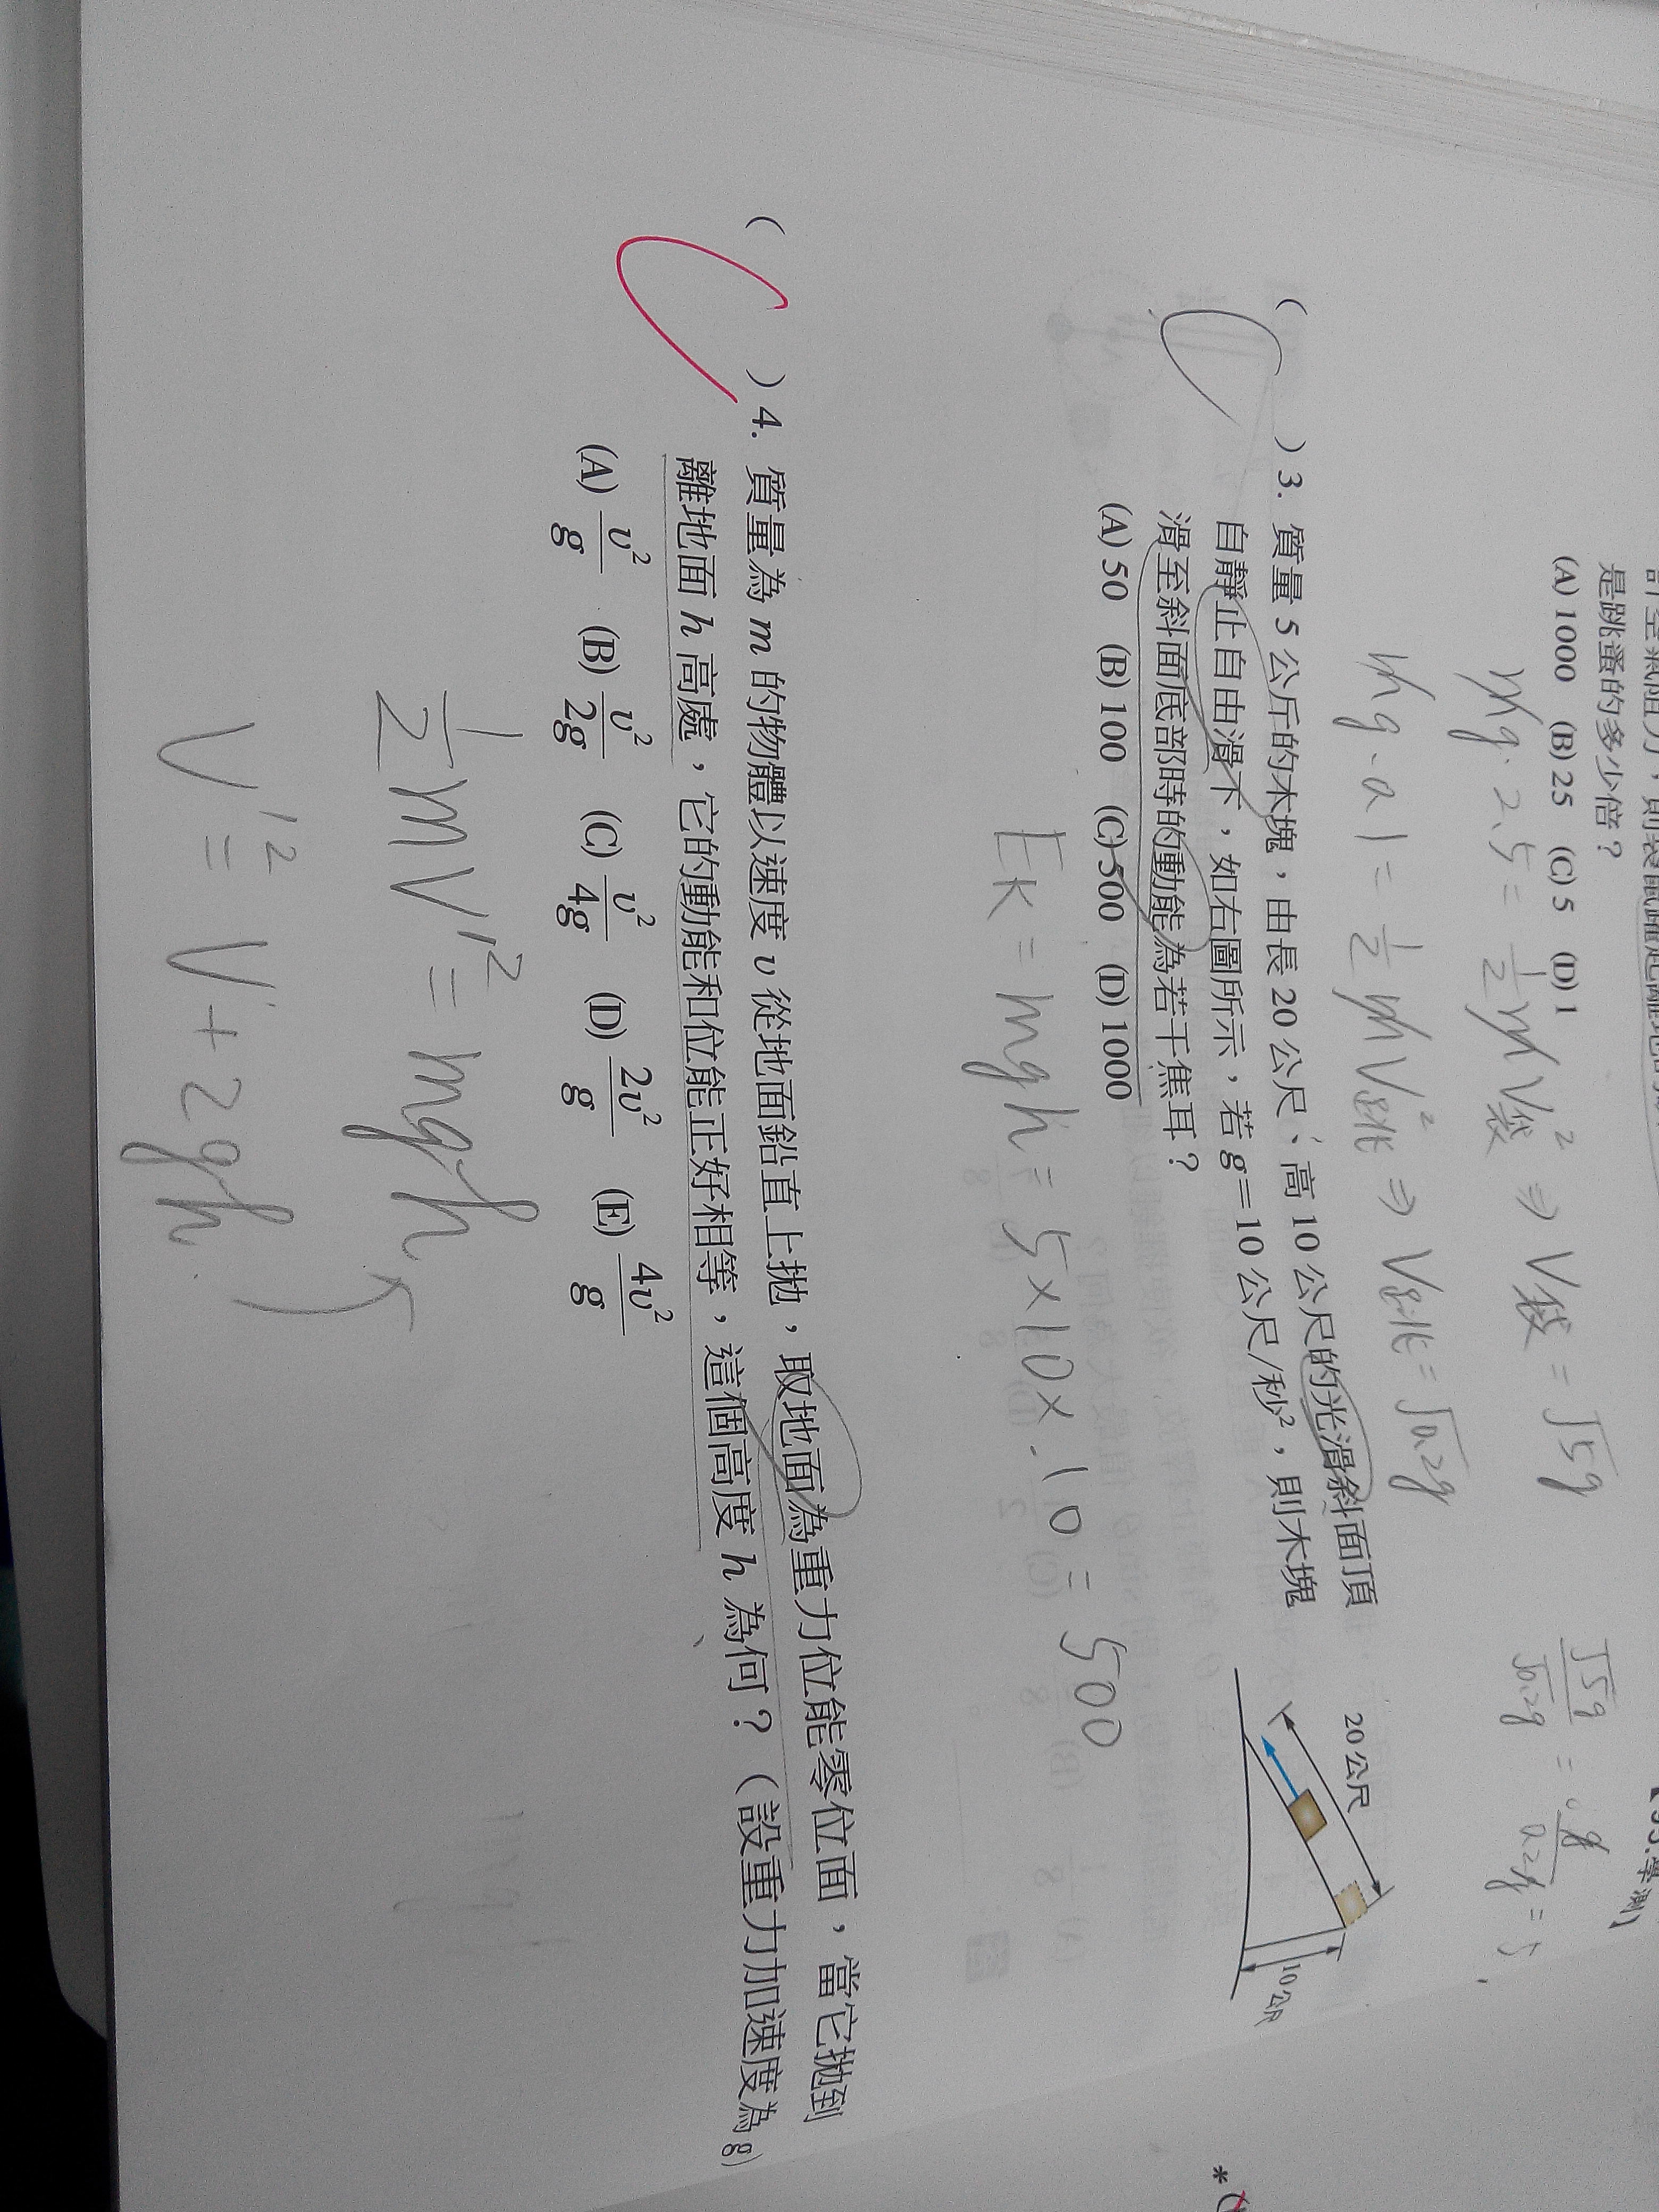 是跳蚤的多少倍？
(A) 1000 (B) 25 (C) 5 (D) 1
mg·2.5 = 1/2 mV袋² ⇒ V袋 = √5g
√5g/√0.2g =
mg·0.1 = 1/2 mV跳² ⇒ V跳 = √0.2g
( C ) 3. 質量 5 公斤的木塊，由長 20 公尺、高 10 公尺的光滑斜面頂
自靜止自由滑下，如右圖所示，若 g＝10 公尺/秒²，則木塊
滑至斜面底部時的動能為若干焦耳？
(A) 50 (B) 100 (C) 500 (D) 1000
20 公尺
10 公尺
Ek = mgh = 5×10×10 = 500
( C ) 4. 質量為 m 的物體以速度 υ 從地面鉛直上拋，取地面為重力位能零位面，當它拋到
離地面 h 高處，它的動能和位能正好相等，這個高度 h 為何？（設重力加速度為g)
(A) υ²/g (B) υ²/2g (C) υ²/4g (D) 2υ²/g (E) 4υ²/g
1/2 mV'² = mgh
V'² = V + 2gh